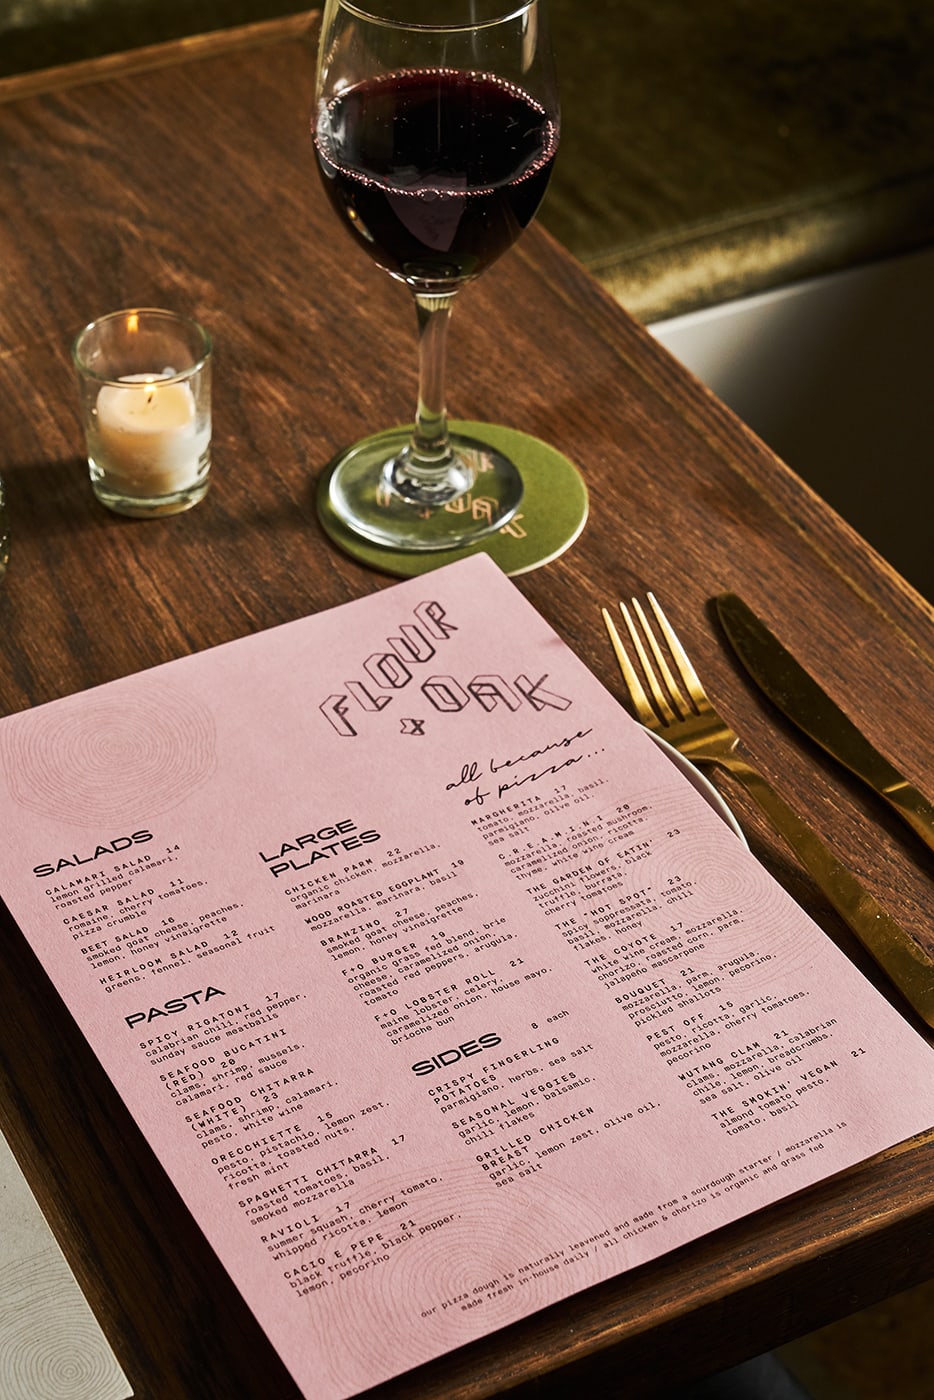 FLOUR
+ OAK
SALADS
CALAMARI SALAD 14
lemon grilled calamari,
roasted pepper
CAESAR SALAD 11
romaine, cherry tomatoes,
pizza crumble
BEET SALAD 16
smoked goat cheese, peaches,
lemon, honey vinaigrette
HEIRLOOM SALAD 12
greens, fennel, seasonal fruit
PASTA
SPICY RIGATONI 17
calabrian chili, red pepper,
sunday sauce meatballs
SEAFOOD BUCATINI
(RED) 20
clams, shrimp, mussels,
calamari, red sauce
SEAFOOD CHITARRA
(WHITE) 23
clams, shrimp, calamari,
pesto, white wine
ORECCHIETTE 15
pesto, pistachio, lemon zest,
ricotta, toasted nuts,
fresh mint
SPAGHETTI CHITARRA 17
roasted tomatoes, basil,
smoked mozzarella
RAVIOLI 17
summer squash, cherry tomato,
whipped ricotta, lemon
CACIO E PEPE 21
black truffle, black pepper,
lemon, pecorino
LARGE
PLATES
CHICKEN PARM 22
organic chicken, mozzarella,
marinara, basil
WOOD ROASTED EGGPLANT 19
mozzarella, marinara, basil
BRANZINO 27
smoked goat cheese, peaches,
lemon, honey vinaigrette
F+O BURGER 19
organic grass fed blend, brie
cheese, caramelized onion,
roasted red peppers, arugula,
tomato
F+O LOBSTER ROLL 21
maine lobster, celery,
caramelized onion, house mayo,
brioche bun
SIDES 8 each
CRISPY FINGERLING
POTATOES
parmigiano, herbs, sea salt
SEASONAL VEGGIES
garlic, lemon, balsamic,
chili flakes
GRILLED CHICKEN
BREAST
garlic, lemon zest, olive oil,
sea salt
all because
of pizza...
MARGHERITA 17
tomato, mozzarella, basil,
parmigiano, olive oil,
sea salt
C.R.E.A.M.I.N.I 20
mozzarella, roasted mushroom,
caramelized onion, ricotta,
thyme, white wine cream
THE GARDEN OF EATIN' 23
zucchini flowers, black
truffle, burrata,
cherry tomatoes
THE "HOT SPOT" 23
spicy soppressata, tomato,
basil, mozzarella, chili
flakes, honey
THE COYOTE 17
white wine cream, mozzarella,
chorizo, roasted corn, parm,
jalapeño mascarpone
BOUQUET 21
mozzarella, parm, arugula,
prosciutto, lemon, pecorino,
pickled shallots
PEST OFF 15
pesto, ricotta, garlic,
mozzarella, cherry tomatoes,
pecorino
WUTANG CLAM 21
clams, mozzarella, calabrian
chile, lemon, breadcrumbs,
sea salt, olive oil
THE SMOKIN' VEGAN 21
almond tomato pesto,
tomato, basil
our pizza dough is naturally leavened and made from a sourdough starter / mozzarella is
made fresh in-house daily / all chicken & chorizo is organic and grass fed